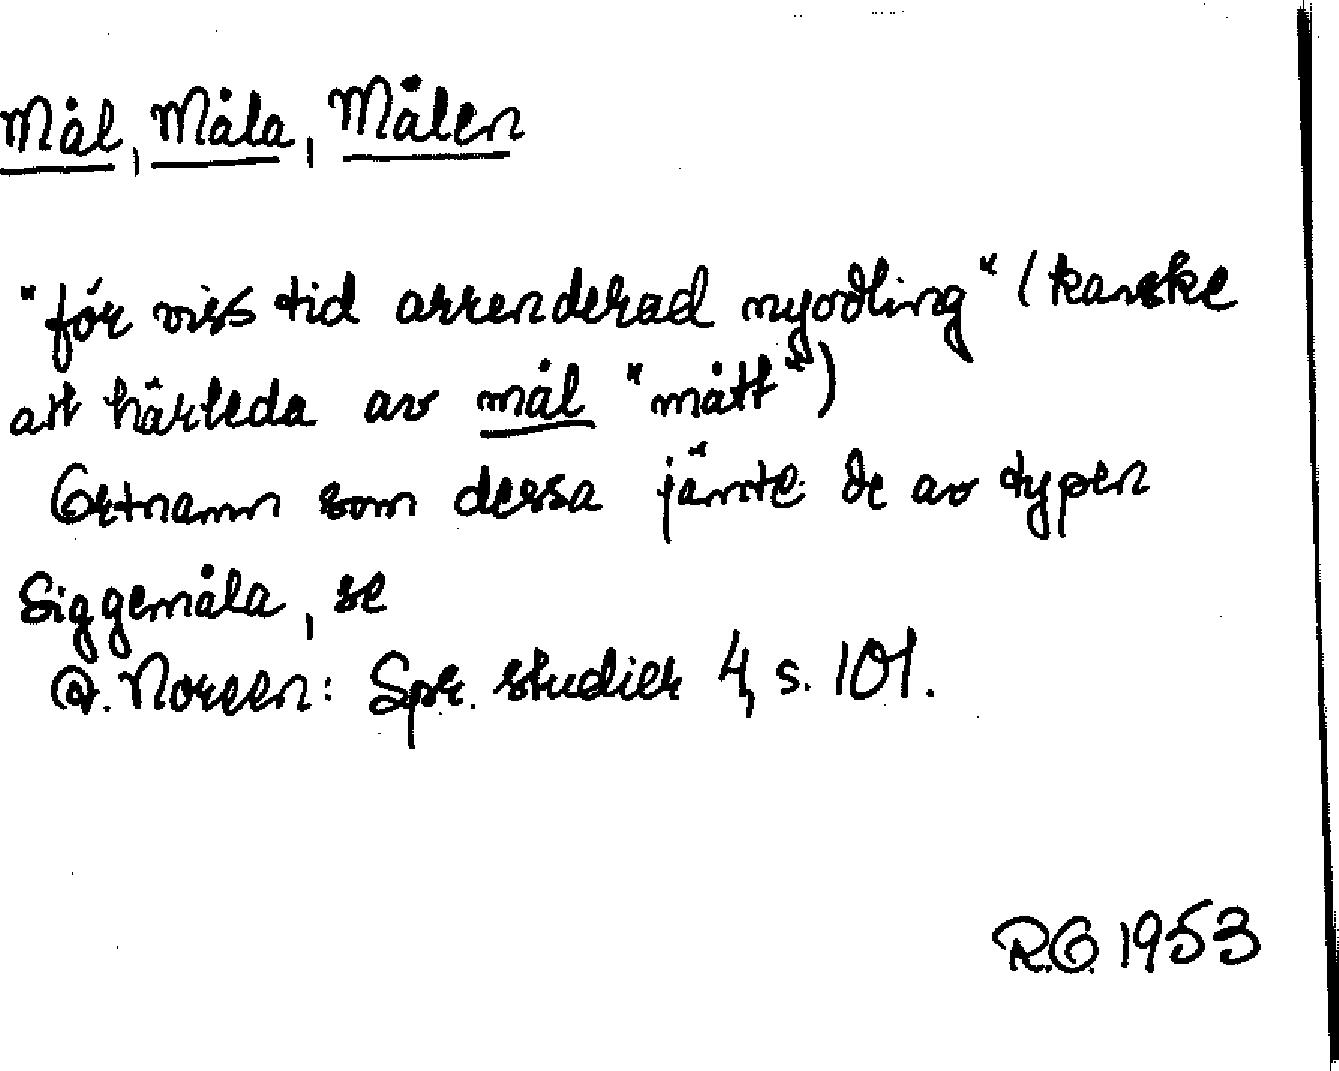 Mål, Måla, Målen
"för viss tid arrenderad nyodling" (kanske
att härleda av mål "mått")
Ortnamn som dessa jämte de av typen
Siggemåla, se
A. Noreen: Spr. studier 4, s. 101.
R.O. 1953